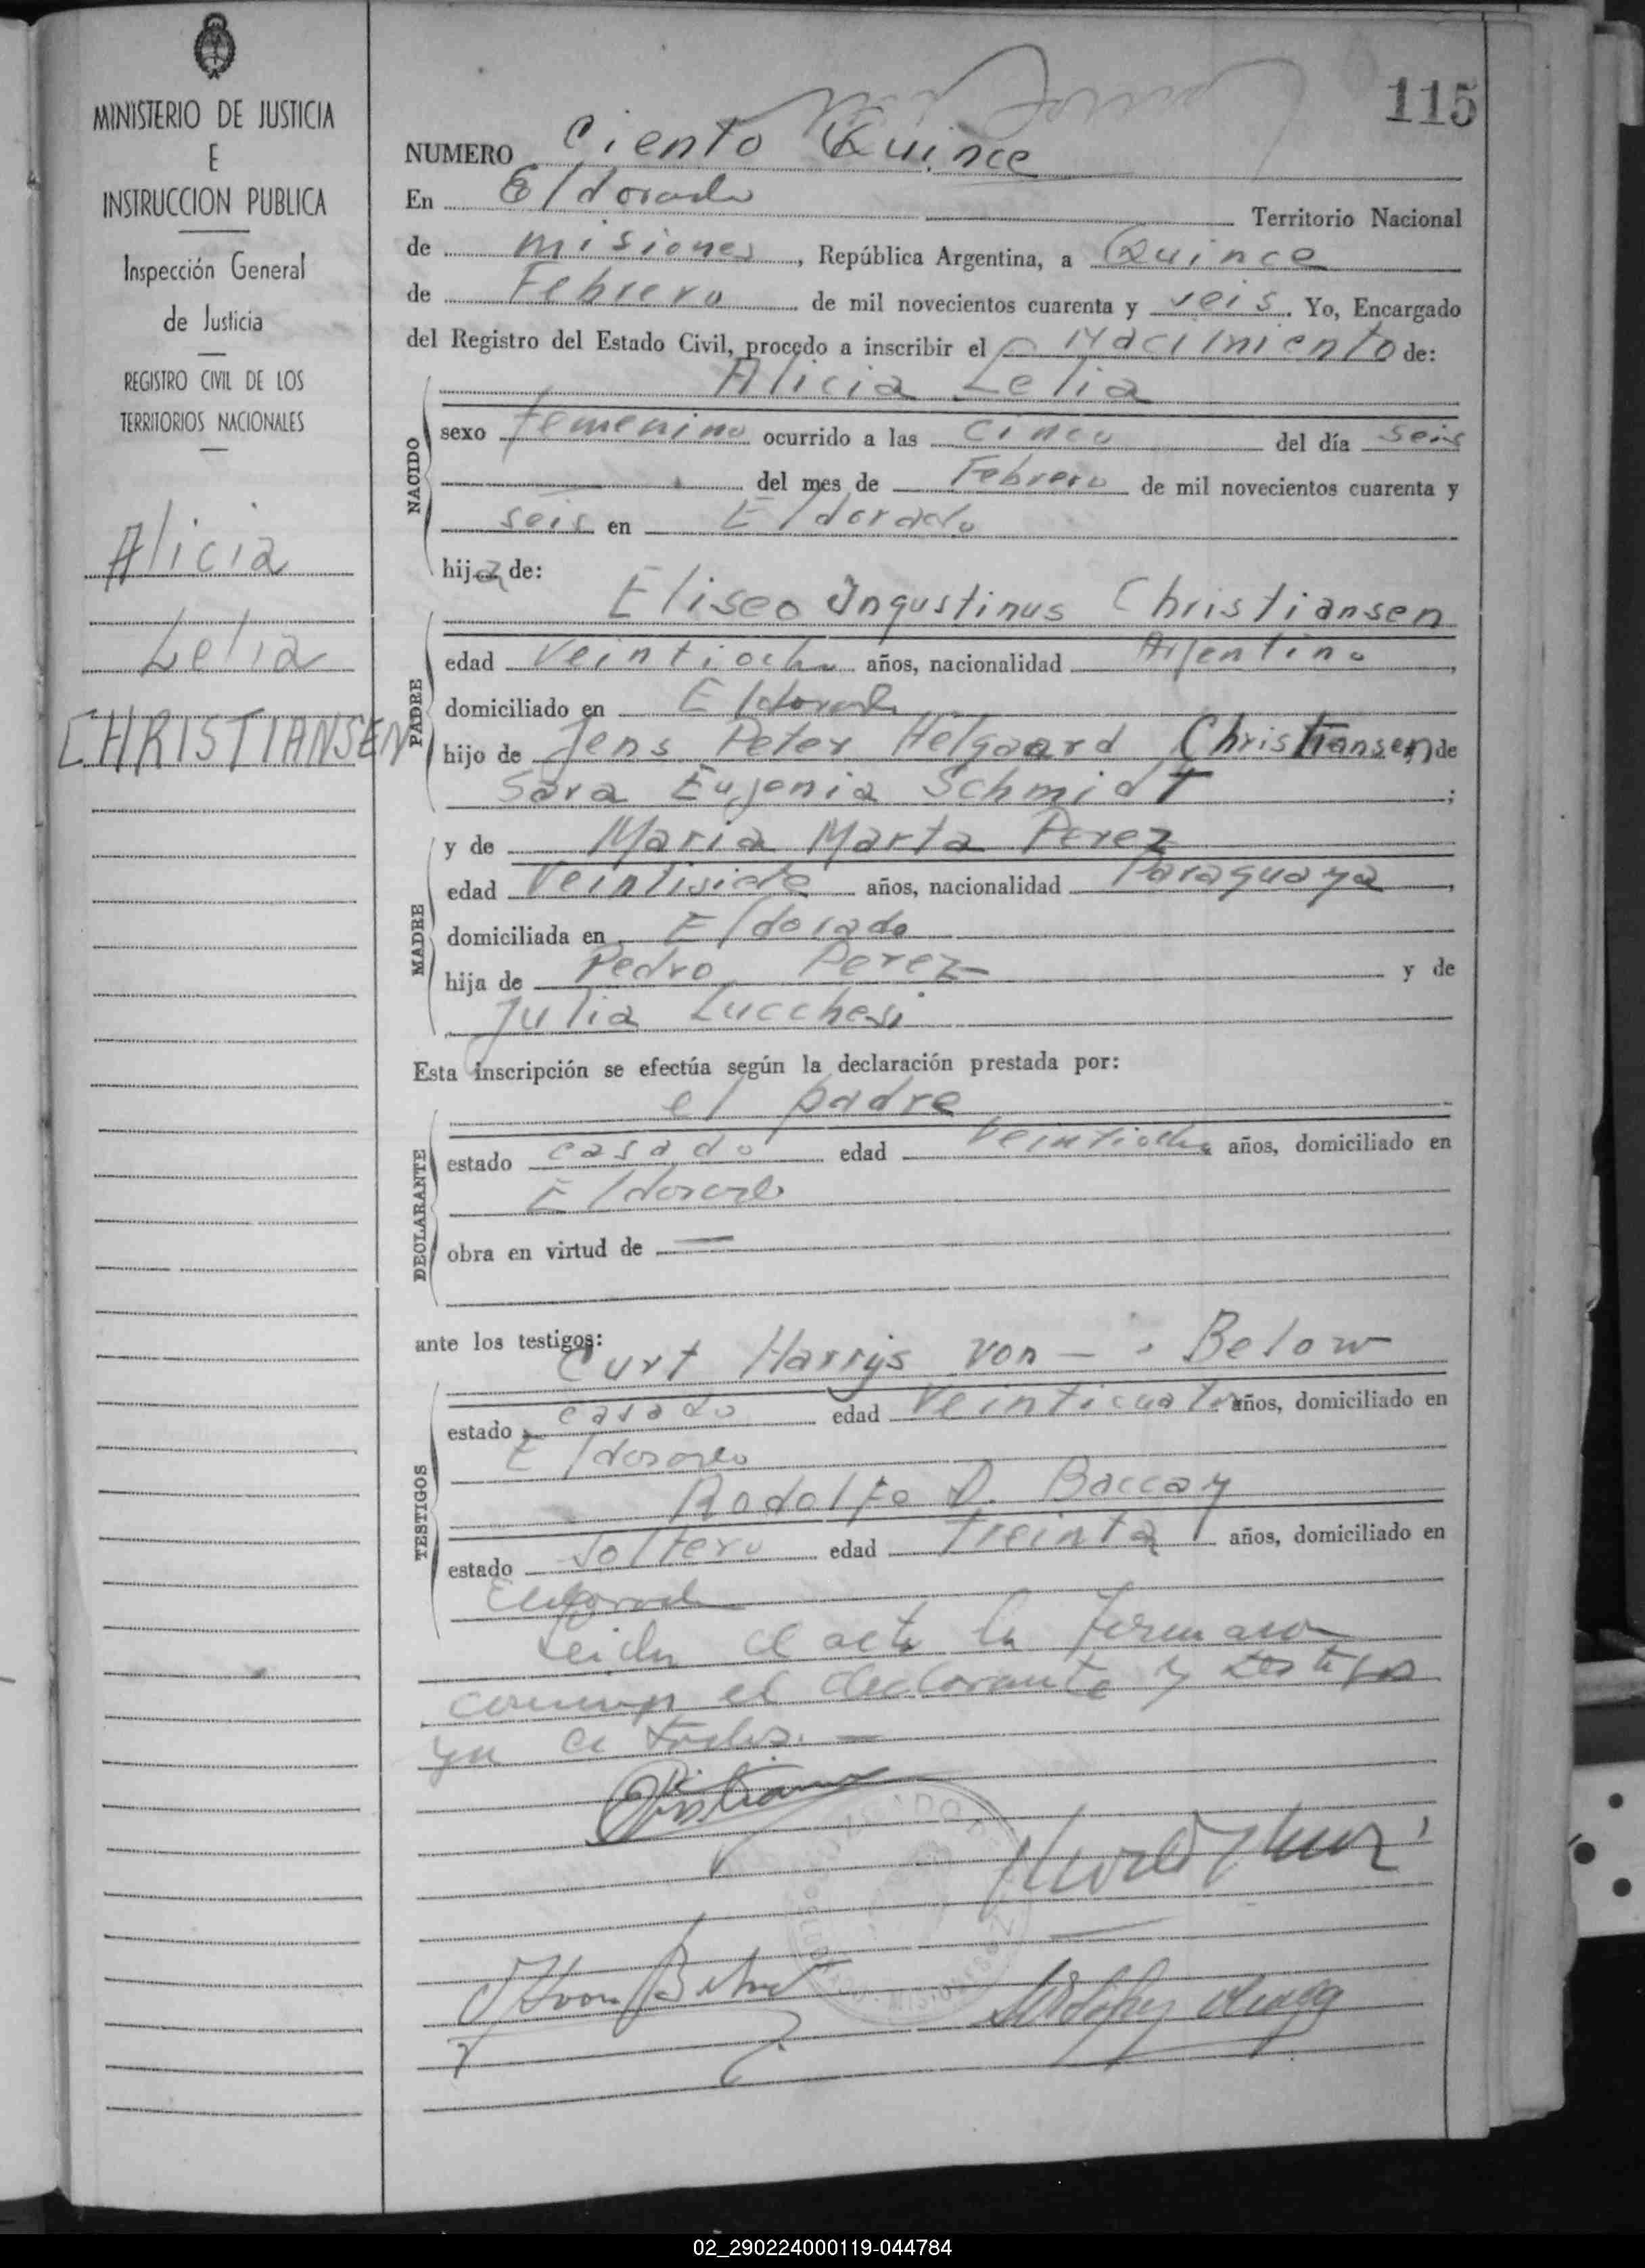 MINISTERIO DE JUSTICIA
E
INSTRUCCION PUBLICA
Inspección General
de Justicia
REGISTRO CIVIL DE LOS
TERRITORIOS NACIONALES
Alicia
Lelia
CHRISTIANSEN
115
NUMERO Ciento Quince
En Eldorado Territorio Nacional
de misiones, República Argentina, a Quince
de Febrero de mil novecientos cuarenta y seis. Yo, Encargado
del Registro del Estado Civil, procedo a inscribir el Nacimiento de:
Alicia Lelia
NACIDO
sexo femenino ocurrido a las cinco del día seis
del mes de Febrero de mil novecientos cuarenta y
seis en Eldorado
hija de:
PADRE
Eliseo Ingustinus Christiansen
edad Veintiocho años, nacionalidad Argentino,
domiciliado en Eldorado
hijo de Jens Peter Helgaard Christiansen de
Sara Eugenia Schmidt;
MADRE
y de Maria Marta Perez
edad Veintisiete años, nacionalidad Paraguaya,
domiciliada en Eldorado
hija de Pedro Perez y de
Julia Lucchesi
Esta inscripción se efectúa según la declaración prestada por:
DECLARANTE
el padre
estado casado edad Veintiocho años, domiciliado en
Eldorado
obra en virtud de —
ante los testigos:
TESTIGOS
Curt Harrys von — Below
estado casado edad Veinticuatro años, domiciliado en
Eldorado
Rodolfo D. Baccay
estado soltero edad Treinta años, domiciliado en
Eldorado
Leida el acta la firmaron
conmigo el declarante y testigos
ya citados. —
02_290224000119-044784